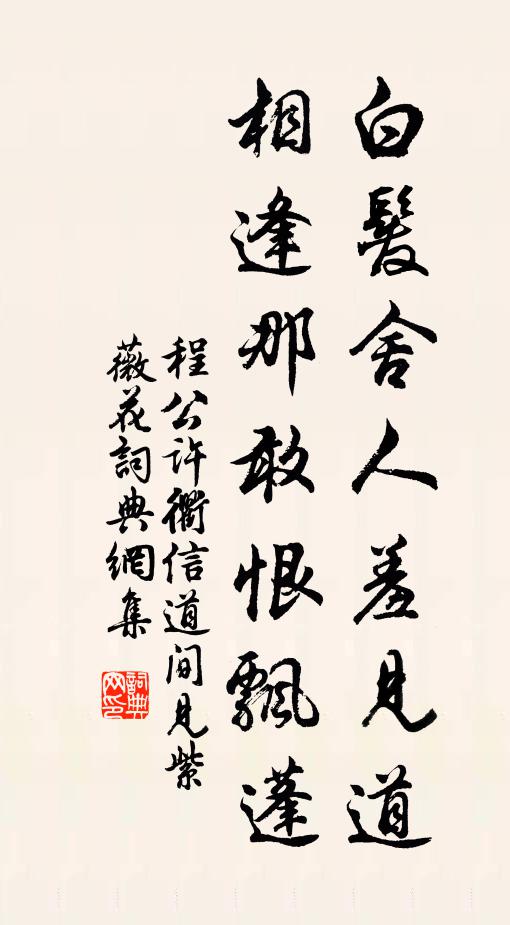 白髮舍人羞見道
相逢那敢恨飄蓬
程公許衢信道間見紫
薇花詞典網集
詞典
网印